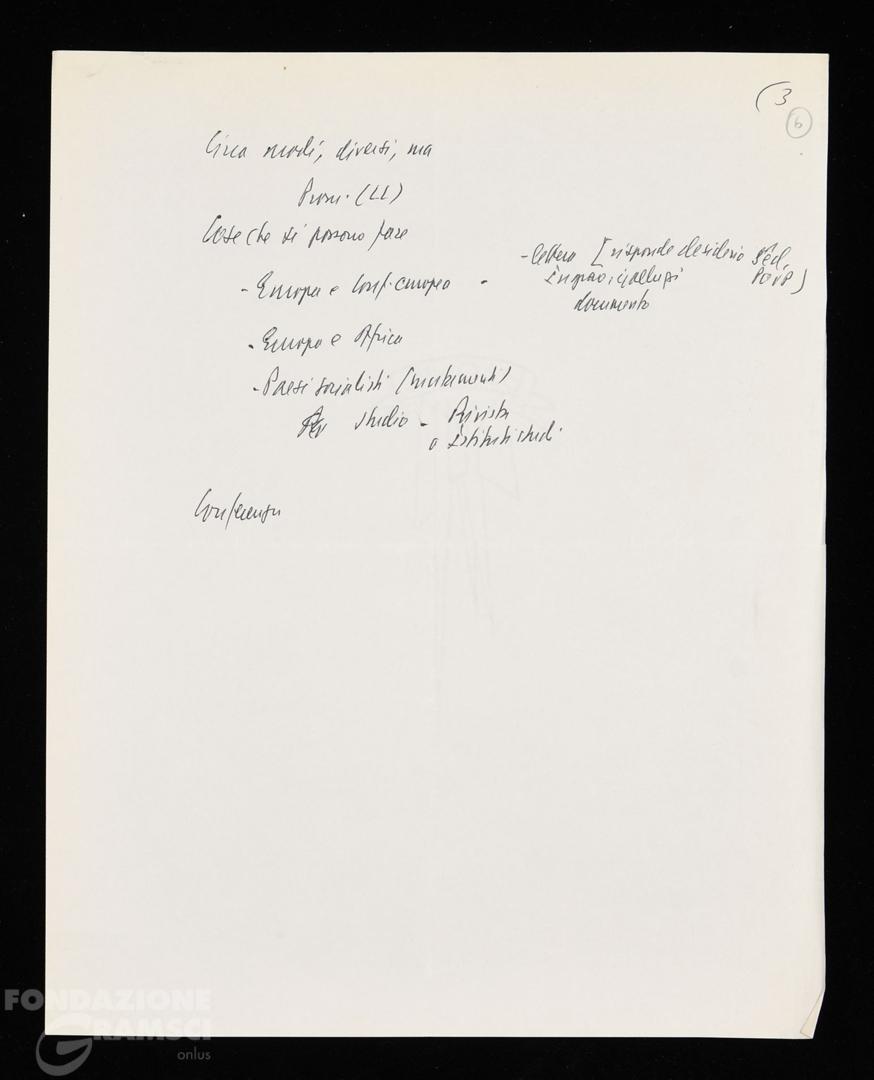 (3
6
Circa modi, diversi, ma
Prom. (LL)
Cose che si possono fare
- Europa e Conf. europea -
- lettera [risponde desiderio Sed, POUP]
Ingrao,
documento
- Europa e Africa
- Paesi socialisti (mutamenti)
Per studio - Rivista
o Istituti studi
Conferenza
FONDAZIONE
GRAMSCI
onlus